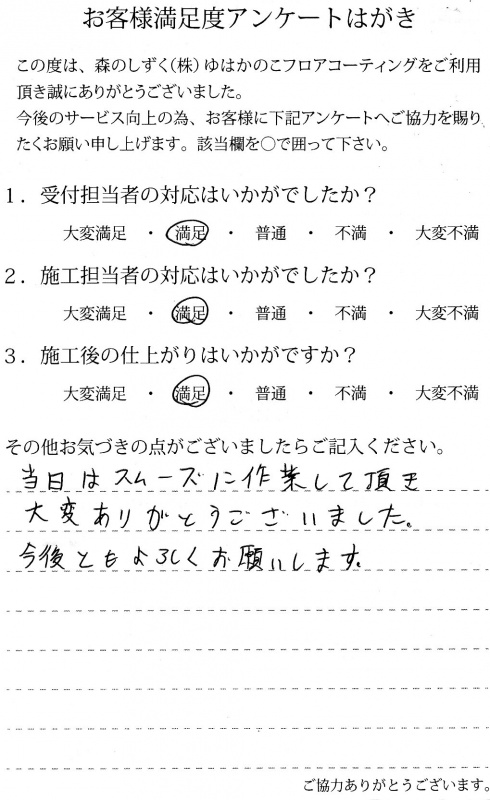 お客様満足度アンケートはがき
この度は、森のしずく(株)ゆはかのこフロアコーティングをご利用
頂き誠にありがとうございました。
今後のサービス向上の為、お客様に下記アンケートへご協力を賜り
たくお願い申し上げます。該当欄を○で囲って下さい。
1．受付担当者の対応はいかがでしたか？
大変満足 ・ 満足 ・ 普通 ・ 不満 ・ 大変不満
2．施工担当者の対応はいかがでしたか？
大変満足 ・ 満足 ・ 普通 ・ 不満 ・ 大変不満
3．施工後の仕上がりはいかがですか？
大変満足 ・ 満足 ・ 普通 ・ 不満 ・ 大変不満
その他お気づきの点がございましたらご記入ください。
当日はスムーズに作業して頂き
大変ありがとうございました。
今後ともよろしくお願いします。
ご協力ありがとうございます。